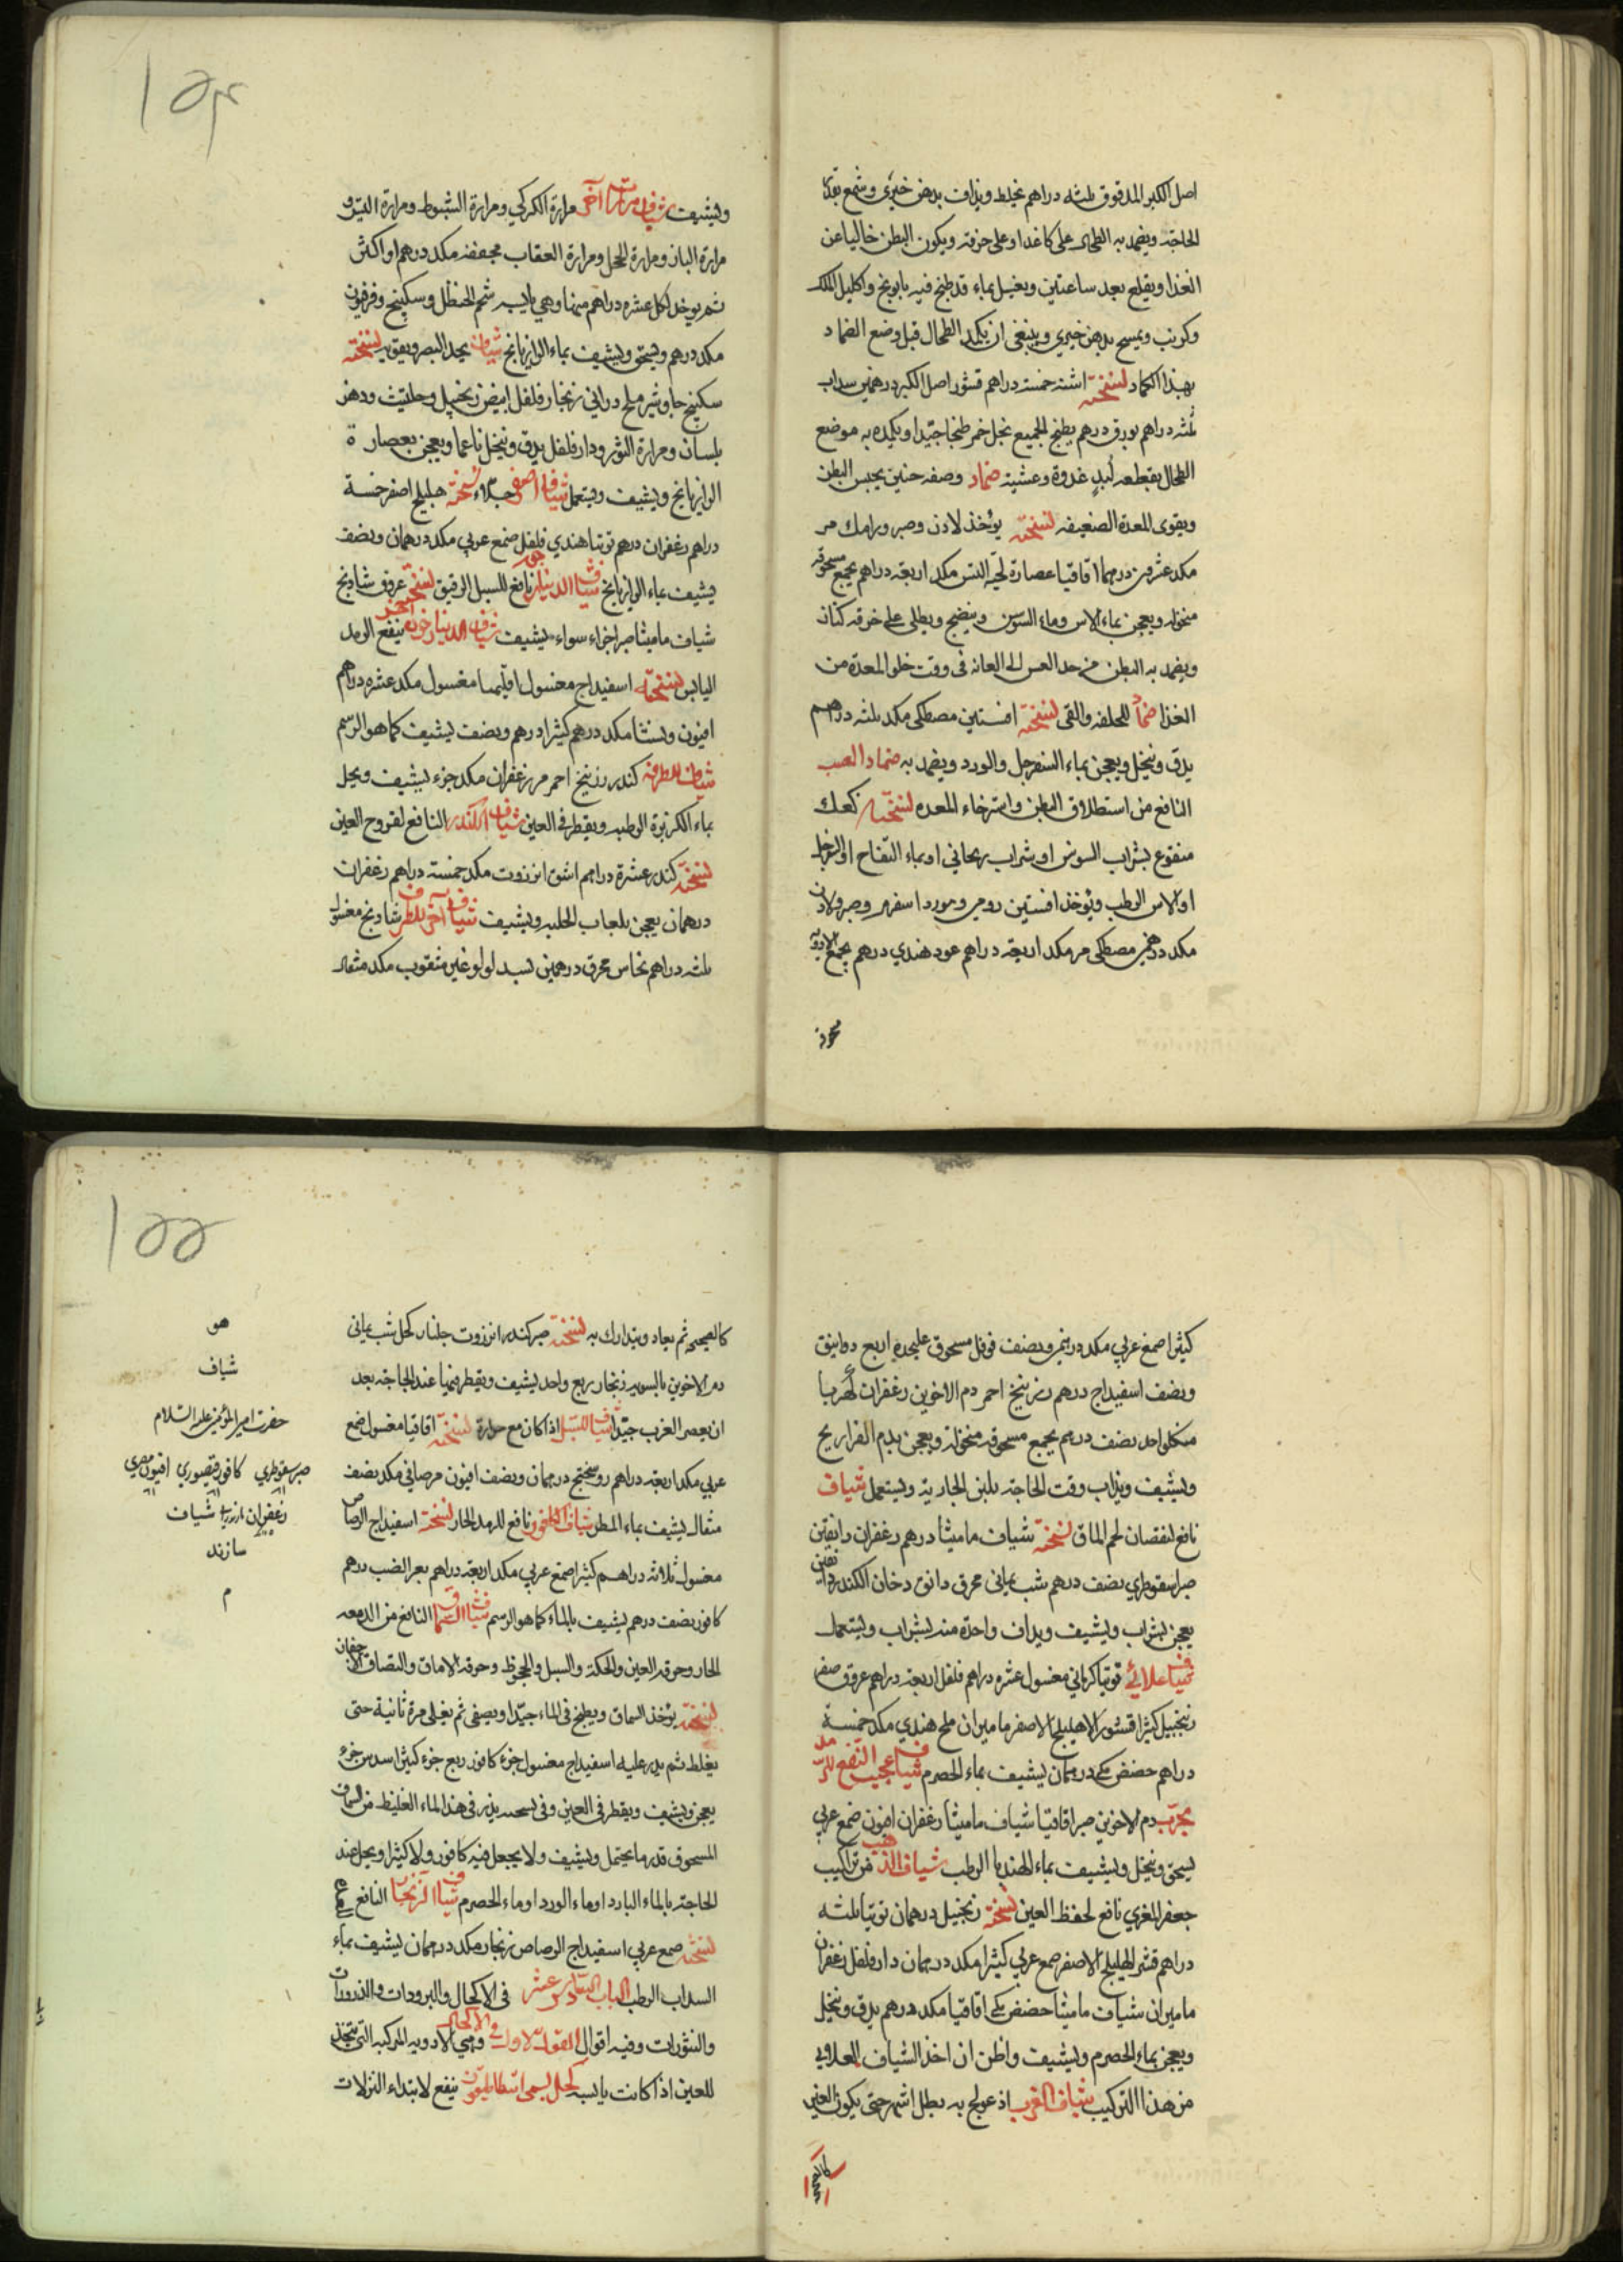 اصل الكبر المدقوق ثلثه دراهم يخلط ويذاف بدهن خيري وشمع بقدر
الحاجة ويضمد به الطحال على كاغذ او على خرقه ويكون البطن خاليا عن
الغذا ويقلع بعد ساعتين ويغسل بماء قد طبخ فيه بابونج واكليل الملك
وكرنب ويمسح بدهن خيري وينبغى ان يكمد الطحال قبل وضع الضماد
بهذا الكماد نسخته اشنه خمسة دراهم قشور اصل الكبر درهمين سداب
ثلثه دراهم بورق درهم يطبخ الجميع بخل خمر طبخا جيدا ويكمد به موضع
الطحال بقطعه لبد غدوة وعشية ضماد وصفه حنين يحبس البطن
ويقوى المعدة الضعيفه نسخته يؤخذ لادن وصبر ورامك مر
مكد عشرين درهما اقاقيا عصارة لحية التيس مكد اربعة دراهم يجمع مسحوقه
منخوله ويعجن بماء الاس وماء السوسن وينضج ويطلى على خرقه كتان
ويضمد به البطن من حد المعدة الى العانه فى وقت خلو المعدة من
الغذا ضماد للحلفه والقى نسخته افسنتين مصطكى مكد ثلثه دراهم
يدق وينخل ويعجن بماء السفرجل والورد ويضمد به ضماد الصب
النافع من استطلاق البطن واسترخاء المعده نسخته كعك
منقوع بشراب السوسن او شراب ريحاني او بماء التفاح او السفرجل
او الاس الرطب ويؤخذ افسنتين رومي وورد اسفرم وصبر ولادن
مكد درهمين مصطكى مر مكد اربعة دراهم عود هندي درهم يجمع الادويه
مسحوقه
١٥٤
ويشيف شياف مرارات آخر مرارة الكركي ومرارة الشبوط ومرارة التيس و
مرارة الباز ومرارة الحجل ومرارة العقاب مجففه مكد درهم او اكثر
ثم يوخذ لكل عشره دراهم منها وهي يابسه شحم الحنظل وسكبينج وفرفيون
مكد درهم ويسحق ويشيف بماء الرازيانج شياف يحد البصر ويقويه نسخته
سكبينج جاوشير ملح دراني زنجار فلفل ابيض زنجبيل وحلتيت ودهن
بلسان ومرارة الثور ودار فلفل يدق وينخل ناعما ويعجن بعصارة
الرازيانج ويشيف ويستعمل شياف اصفر جلاء نسخته هليلج اصفر خمسة
دراهم زعفران درهم توتيا هندي فلفل صمغ عربي مكد درهمان ونصف
يشيف بماء الرازيانج شياف الدينارجون نافع للسبل الرقيق نسخته عروق شادنج
شياف ماميثا صبر اجزاء سواء يشيف شياف الدينارجون آخر ينفع الرمد
اليابس نسخته اسفيداج مغسول اقليميا مغسول مكد عشره دراهم
افيون ونشا مكد درهم كثيرا درهم ونصف يشيف كما هو الرسم
شياف للطرفه كندر زرنيخ احمر مر زعفران مكد جزء يشيف ويحل
بماء الكزبرة الرطبه ويقطر فى العين شياف الكندر النافع لقروح العين
نسخته كندر عشرة دراهم اشق انزروت مكد خمسة دراهم زعفران
درهمان يعجن بلعاب الحلبه ويشيف شياف آخر للطرفه شادنج مغسول
ثلثه دراهم نحاس محرق درهمين بسد لولو غير مثقوب مكد مثقال
كثيرا صمغ عربي مكد درهم ونصف فوفل مسحوق عليحدة اربع دوانيق
ونصف اسفيداج درهم زرنيخ احمر دم الاخوين زعفران كهربا
من كل واحد نصف درهم يجمع مسحوقه منخولة ويعجن بدم الفراريج
ويشيف ويذاب وقت الحاجة بلبن الجارية ويستعمل شياف
نافع لنقصان لحم الماق نسخته شياف ماميثا درهم زعفران دانقين
صبر سقوطري نصف درهم شب يماني محرق دانق دخان الكندر دانقين
يعجن بشراب ويشيف ويداف واحدة منه بشراب ويستعمل
شياف علائي توتيا كرماني مغسول عشره دراهم فلفل اربعة دراهم عروق صفر
زنجبيل كثيرا قشور الاهليلج الاصفر ماميران ملح هندي مكد خمسة
دراهم حضض مكي درهمان يشيف بماء الحصرم شياف عجيب النفع للرمد
مجرب دم الاخوين صبر اقاقيا شياف ماميثا زعفران افيون صمغ عربي
يسحق وينخل ويشيف بماء الهندبا الرطب شياف الذهب من تراكيب
جعفر المغربي نافع لحفظ العين نسخته زنجبيل درهمان توتيا ثلثه
دراهم قشر الهليلج الاصفر صمغ عربي كثيرا مكد درهمان دار فلفل زعفران
ماميران شياف ماميثا حضض مكي اقاقيا مكد درهم يدق وينخل
ويعجن بماء الحصرم ويشيف واظن ان اخذ الشياف العلاوى
من هذا التركيب شياف الغرب اذ عولج به بطل اشهر حتى يكون العين
كالصحيحه
١٥٥
كالصحيحه ثم يعاد ويتدارك به نسخته صبر كندر انزروت جلنار كحل شب يماني
دم الاخوين بالسويه زنجار ربع واحد يشيف ويقطر فيها عند الحاجة بعد
ان يعصر الغرب جيدا شياف للسبل اذا كان مع حرارة نسخته اقاقيا مغسول صمغ
عربي مكد اربعة دراهم روسختج درهمان ونصف افيون مر صافي مكد نصف
مثقال يشيف بماء المطر شياف الكافور نافع للرمد الحار نسخته اسفيداج الرصاص
مغسول ثلاثه دراهم كثيرا صمغ عربي مكد اربعة دراهم بعر الضب درهم
كافور نصف درهم يشيف بالماء كما هو الرسم شياف السماق النافع من الدمعه
الحار وحرقه العين والحكة والسبل والجحوظ وحرقه الاماق والتصاق الاجفان
نسخته يؤخذ السماق ويطبخ فى الماء جيدا ويصفى ثم يغلى مرة ثانية حتى
يغلظ ثم يذر عليه اسفيداج مغسول جزء كافور ربع جزء كثيرا سدس جزء
يعجن ويشيف ويقطر فى العين وفى نسخه يذر فى هذا الماء الغليظ من السماق
المسحوق قدر ما يحتمل ويشيف ولا يجعل فيه كافور ولا كثيرا ويحل عند
الحاجة بالماء البارد او ماء الورد او ماء الحصرم شياف الزنجار النافع
نسخته صمغ عربي اسفيداج الرصاص زنجار مكد درهمان يشيف بماء
السداب الرطب الباب السادس عشر فى الاكحال والبرودات والذرورات
والنثورات وفيه اقوال القول الاول فى الاكحال وهي الادويه المركبه التى تتخذ
للعين اذا كانت يابسه كحل يسمى ينفع لابتداء النزلات
هو
شياف
حضرت امير المؤمنين عليه السلام
صبر سقوطري كافور قيصوري افيون مصري
زعفران شياف
سازند
م